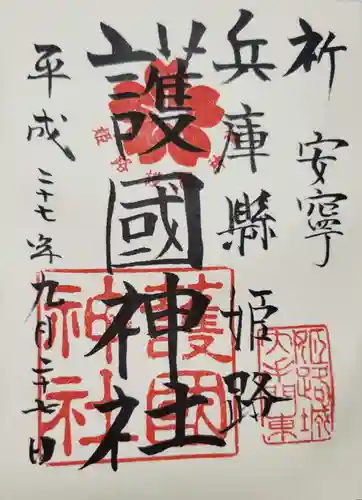 祈 安寧
兵庫縣 姫路
護國神社
平成二十七年九月二十七日
護國
神社
姫路城
大手門東